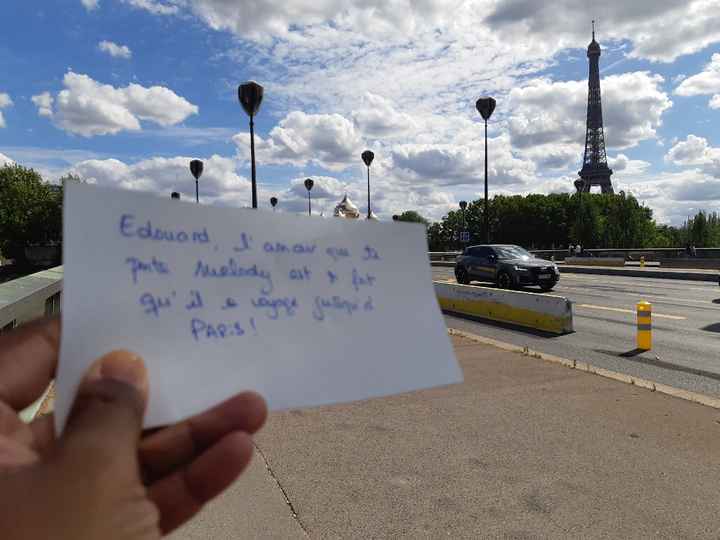 Edouard, l'amour que te
porte Melody est si fort
qu'il a voyagé jusqu'à
PARIS!